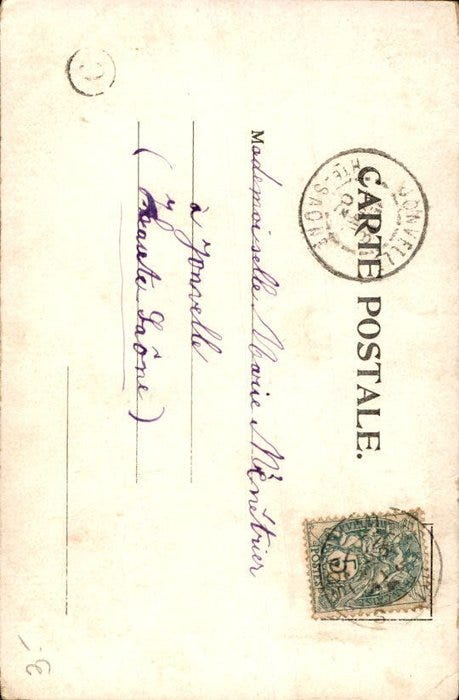 CARTE POSTALE.
JONVELLE
HTE-SAÔNE
5
POSTES
Mademoiselle Marie Ménétrier
à Jonvelle
(Haute Saône)